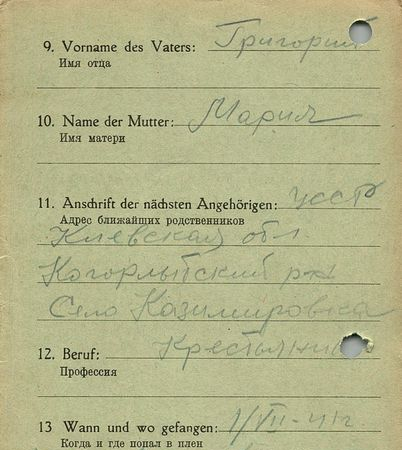 9. Vorname des Vaters: Григорий
Имя отца
10. Name der Mutter: Мария
Имя матери
11. Anschrift der nächsten Angehörigen: УССР
Адрес ближайших родственников
Киевская обл
Когорлытский р-н
Село Казимировка
12. Beruf: Крестьянин
Профессия
13 Wann und wo gefangen: 1/VII-41г
Когда и где попал в плен